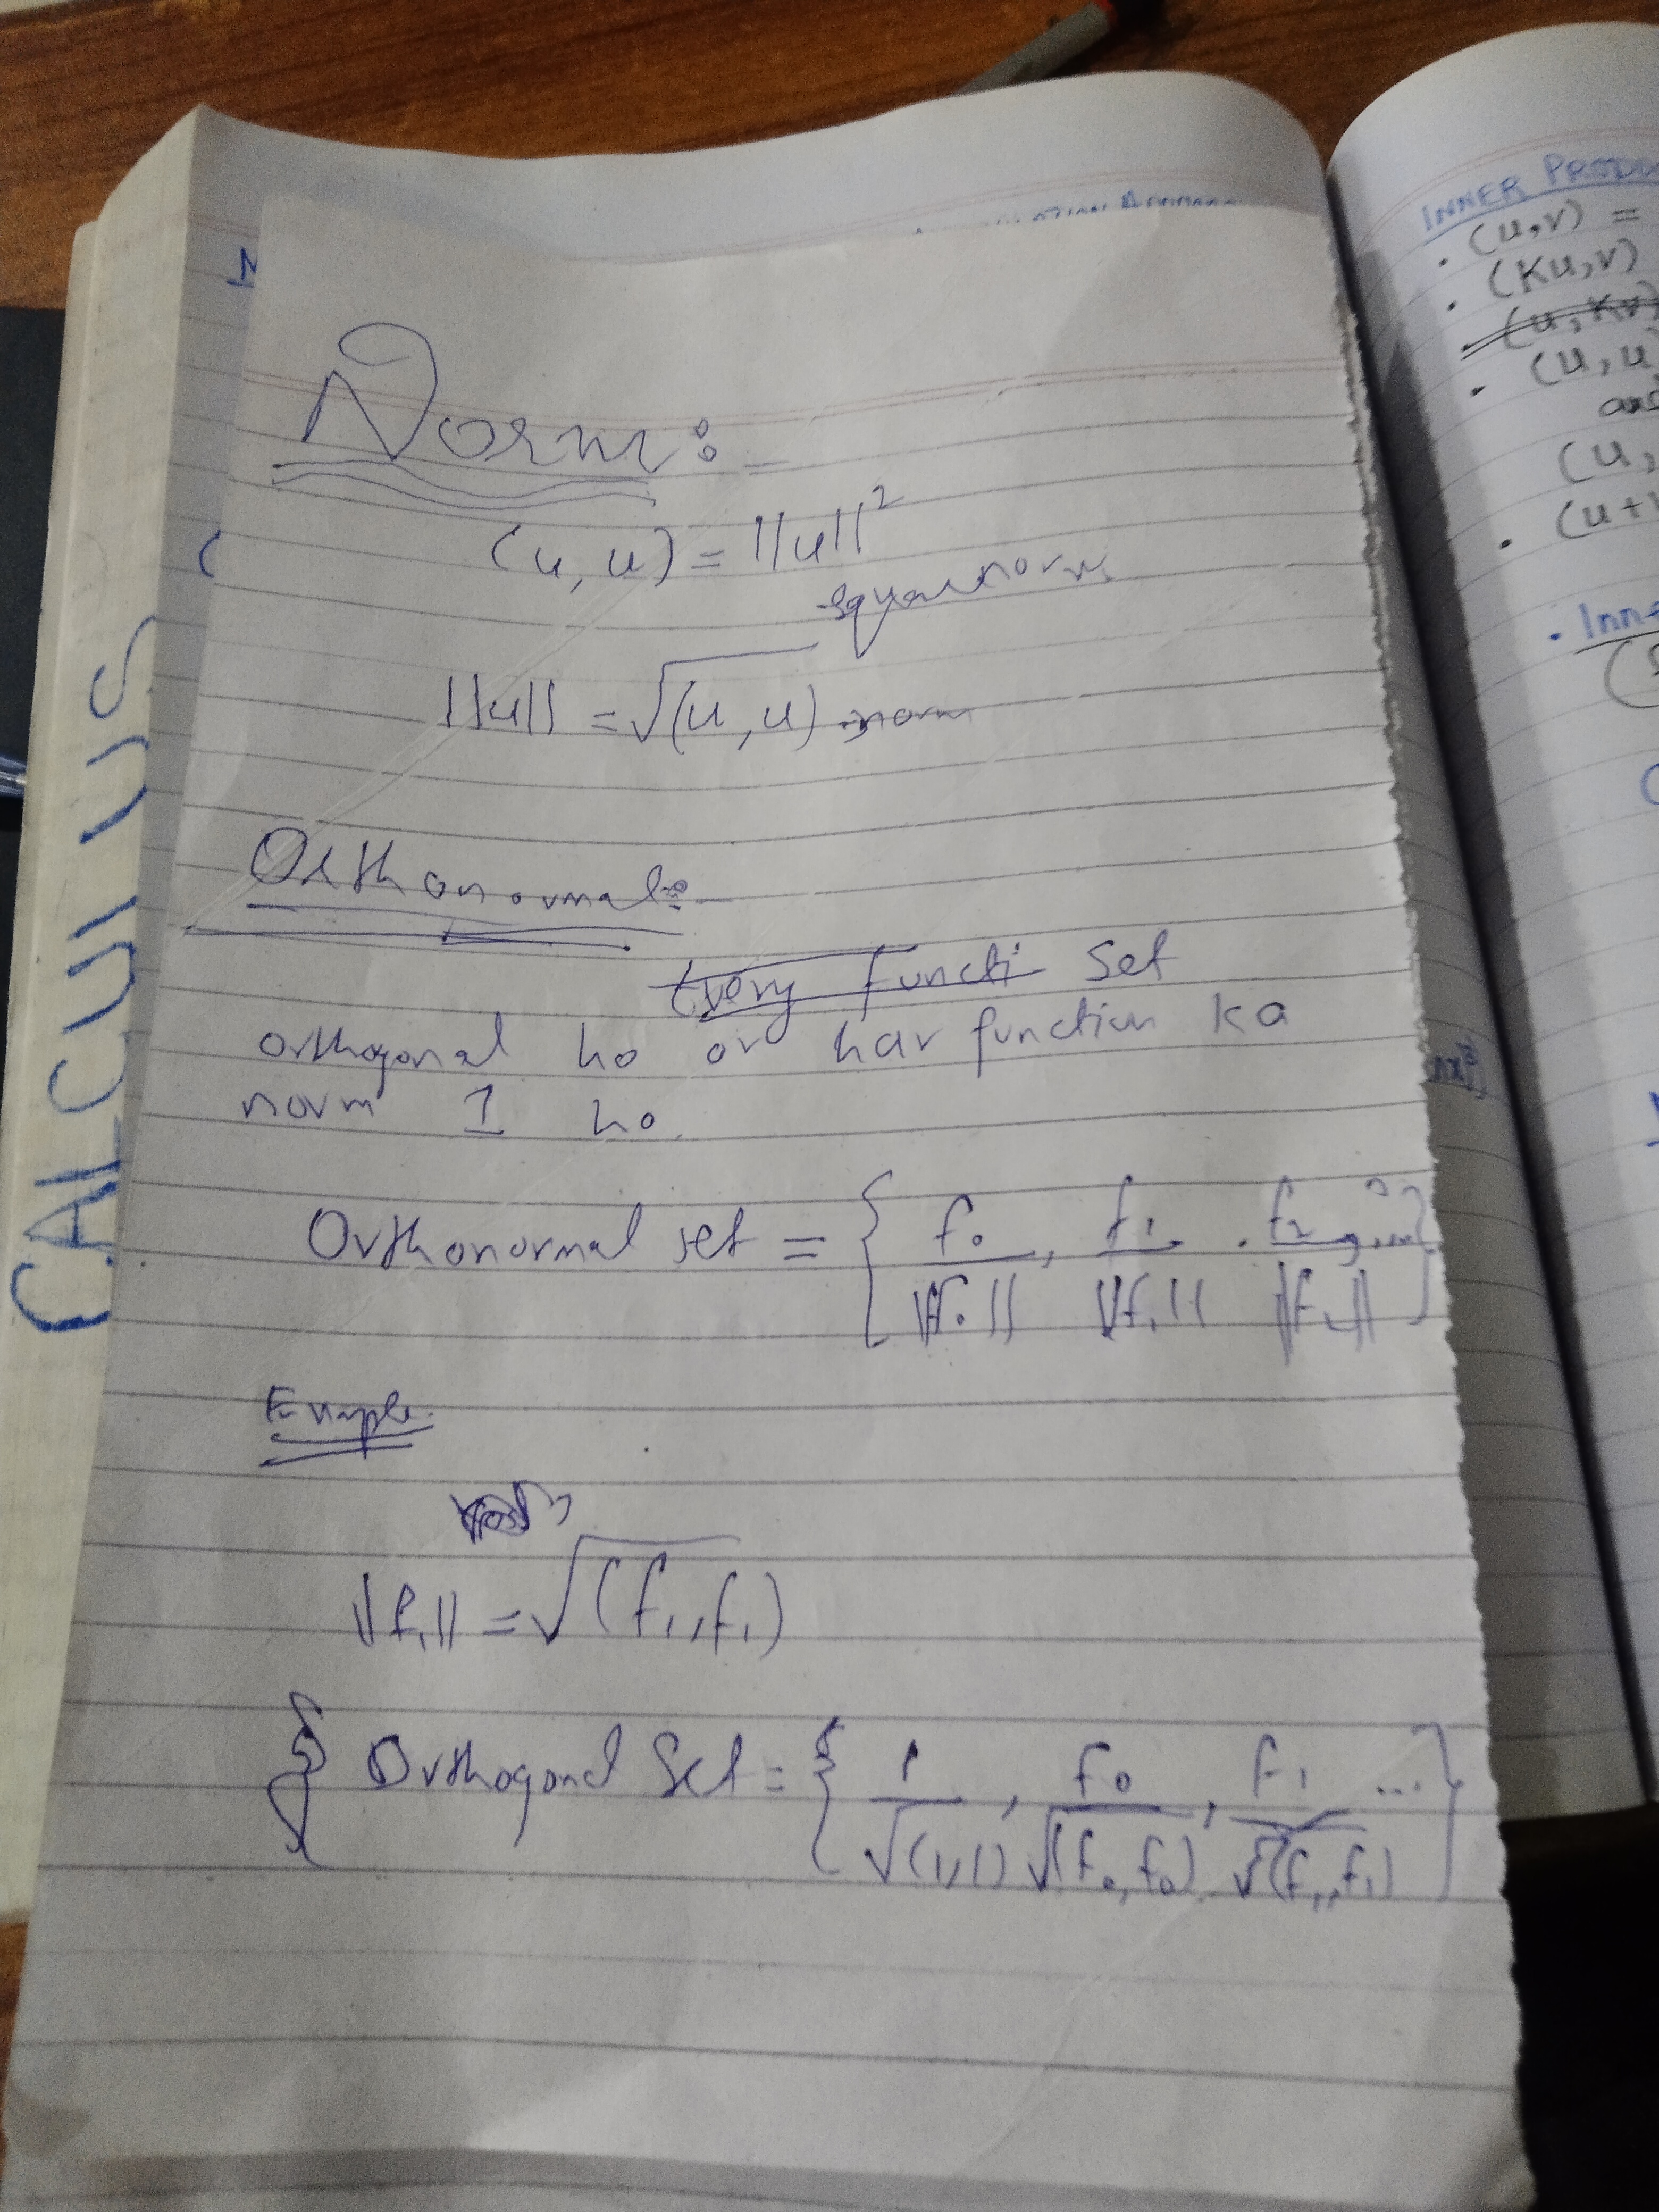 Norm:-
(u, u) = ||u||²
square norm
||u|| = √(u, u) norm
Orthonormal:-
Every functi set
orthogonal ho or har function ka
norm 1 ho.
Orthonormal set = { f₀/||f₀||, f₁/||f₁||, f₂/||f₂||, ... }
Example.
||f₁|| = √(f₁, f₁)
Orthogonal Set = { 1/√(1,1), f₀/√(f₀, f₀), f₁/√(f₁, f₁) ... }
CALCULUS
INNER
• (u,v) =
• (Ku,v)
(u, Kv)
• (u, u
and
(u,
• (u+